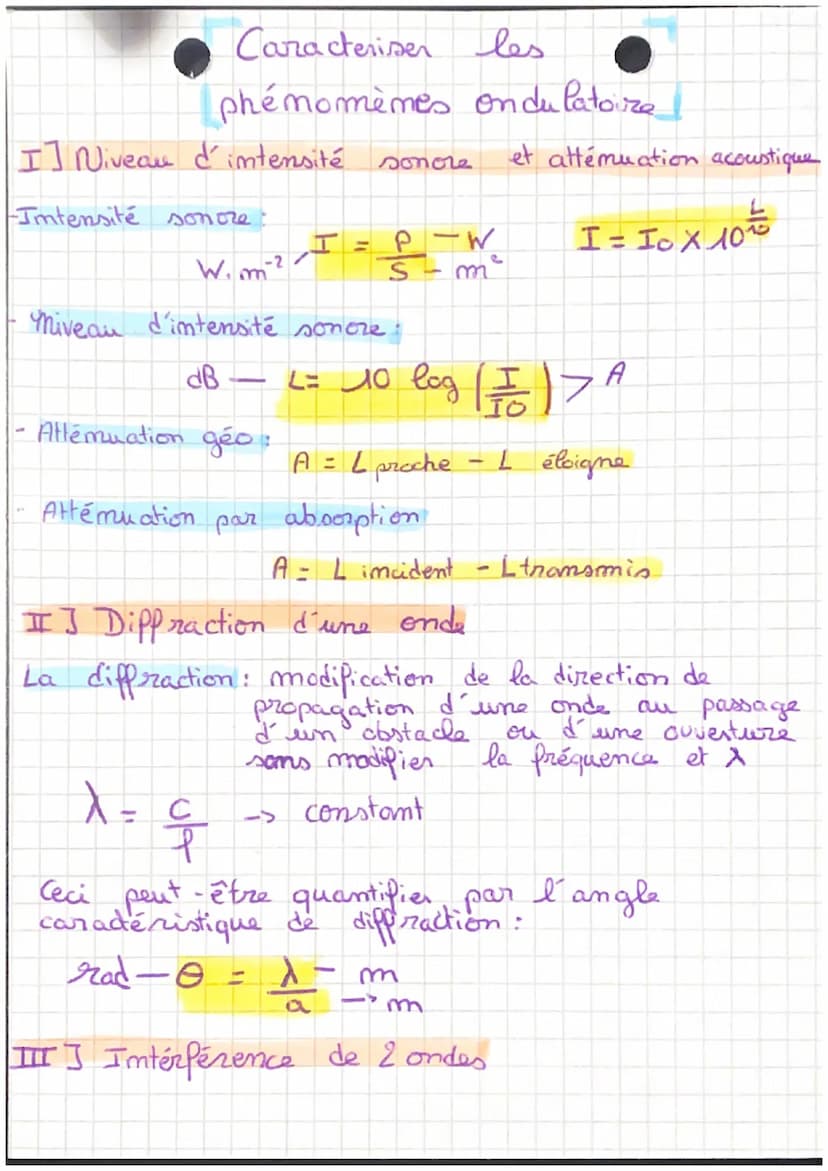 Caracteriser les
phénomèmes ondulatoire
I] Niveau d'intensité sonore et atténuation acoustique
-Intensité sonore :
W.m⁻² / I = P/S - W - m² I = I0 X 10^(L/10)
- niveau d'intensité sonore :
dB — L= 10 log (I/I0) > A
- Atténuation géo :
A = L proche - L éloigne
- Atténuation par absorption
A = L incident - L transmis
II] Diffraction d'une onde
La diffraction : modification de la direction de
propagation d'une onde au passage
d'un obstacle ou d'une ouverture
sans modifier la fréquence et λ
λ = c/f -> constant
Ceci peut-être quantifier par l'angle
caractéristique de diffraction :
rad — θ = λ/a - m -> m
III] Intérférence de 2 ondes